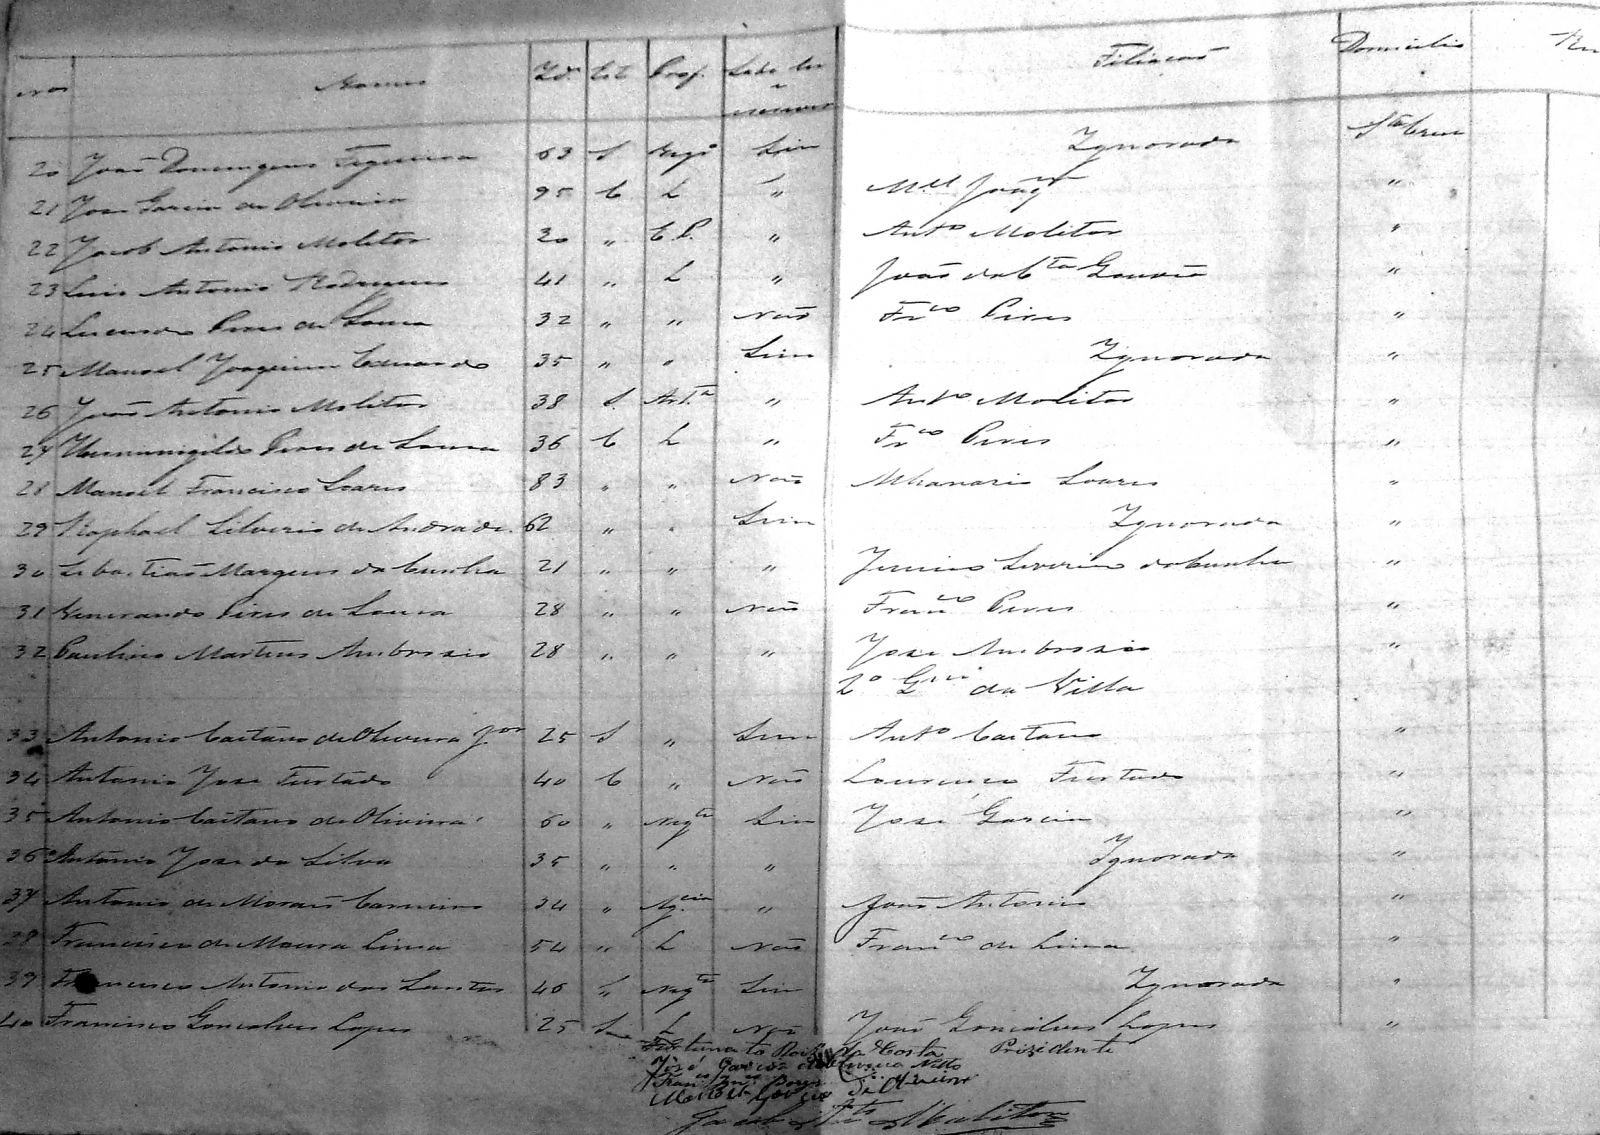 Nos Nomes Id. Est. Prof. Sabe ler e escrever Filiação Domicilio
20 João Domingues Figueira 63 S Neg.º Sim Ignorada Sta Cruz
21 José Garcia de Oliveira 95 C L " Mel Joaqm "
22 Jacob Antonio Molitor 30 " E.P. " Anto Molitor "
23 Luis Antonio Rodrigues 41 " L " João da Cta Gouvêa "
24 Pires de Souza 32 " " Não Frco Pires "
25 Manoel Joaquim Eduardo 35 " " Sim Ignorada "
26 João Antonio Molitor 38 S. Art.ta " Anto Molitor "
27 Herminigildo Pires de Souza 36 C L " Frco Pires "
28 Manoel Francisco Soares 83 " " Não Soares "
29 Raphael Silverio de Andrade 62 " " Sim Ignorada "
30 Sebastião Marques da Cunha 21 " " " Severino da Cunha "
31 Venerando Pires de Souza 28 " " Não Franco Pires "
32 Paulino Martins Ambrosio 28 " " " José Ambrosio "
2º da Villa
33 Antonio Caetano de Oliveira Jor 25 S " Sim Anto Caetano "
34 Antonio José Furtado 40 C " Não Lourenço Furtado "
35 Antonio Caetano de Oliveira 60 " Negte Sim José Garcia "
36 Antonio José da Silva 35 " " " Ignorada "
37 Antonio de Morais Carneiro 34 " " João Antonio "
38 Francisco de Moura Lima 54 " L Não Franco de Lima "
39 Francisco Antonio dos Santos 46 " Negte Sim Ignorada "
40 Francisco Gonçalves Lopes 25 S L Não João Gonçalves Lopes "
Fortunato da Costa Prizidente
José Garcia de Oliveira Netto
Borges
Jacob Anto Molitor